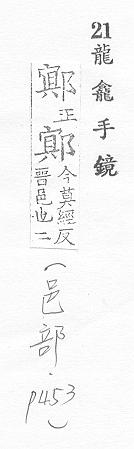 21 龍龕手鏡
正
今莫經反
晉邑也二
(邑部·p453)